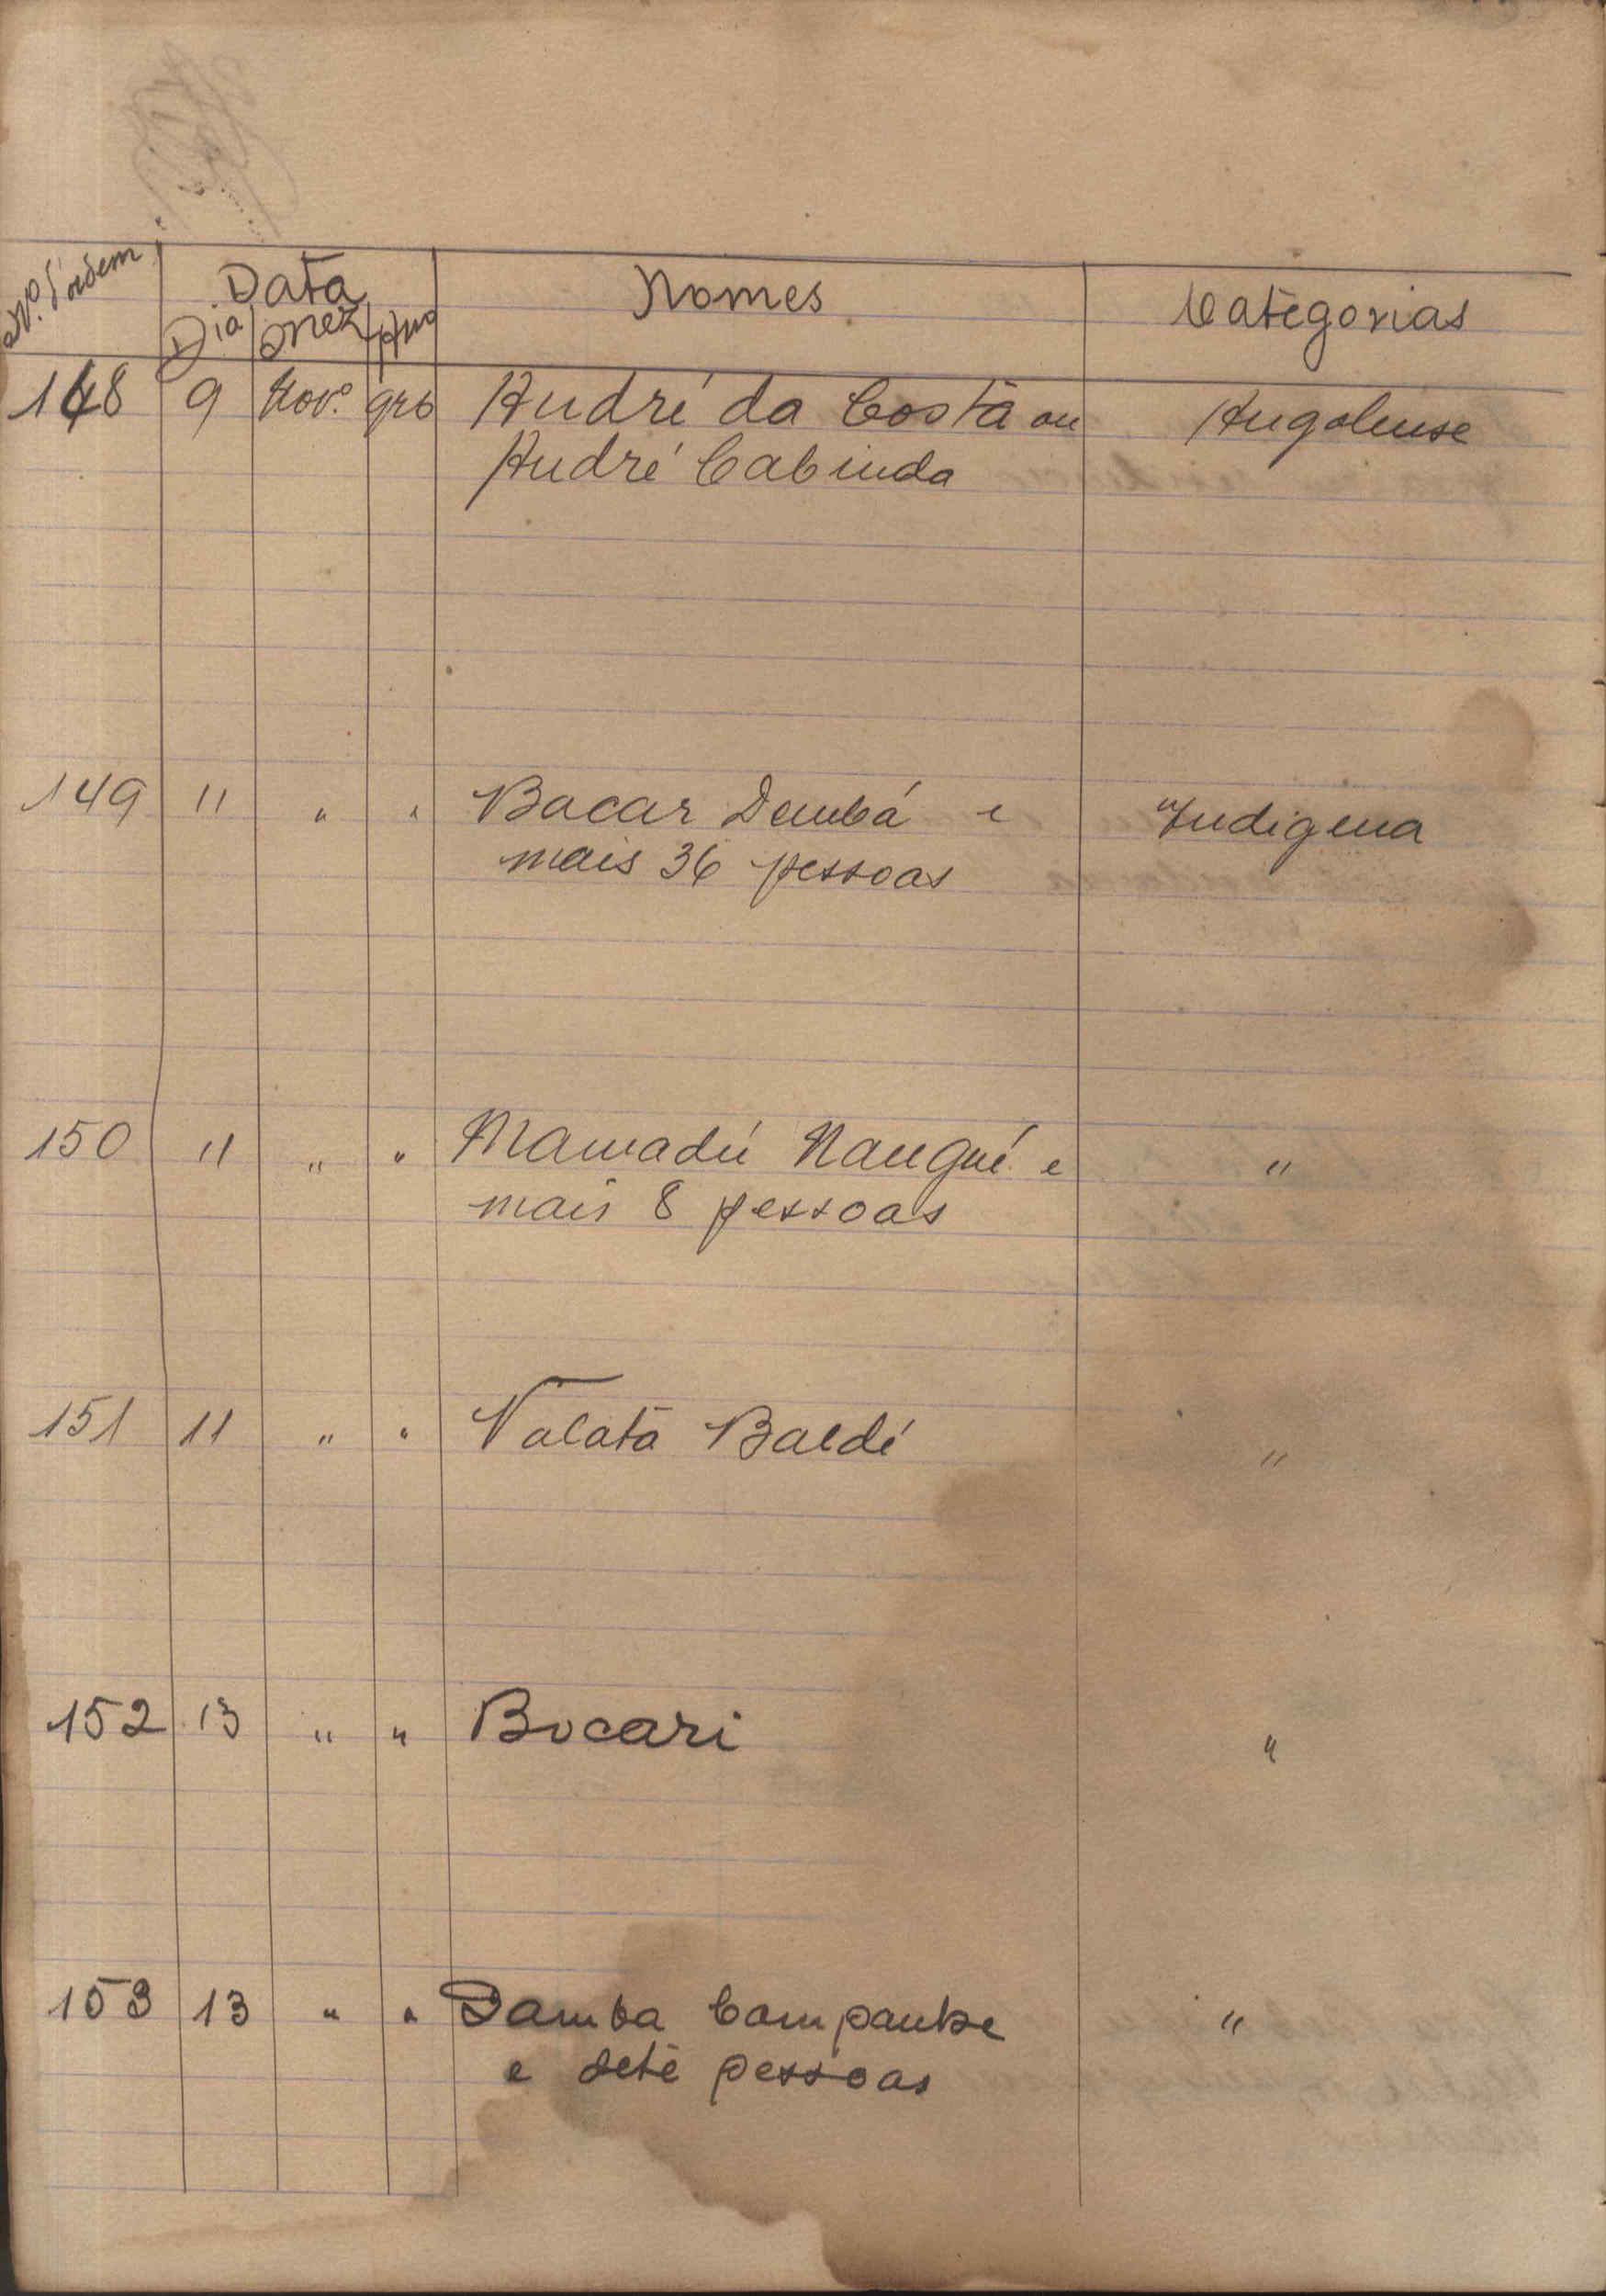 Nº. d'ordem Data Nomes Categorias
Dia Mez Ano
148 9 Nov.º 926 André da Costa ou Angolense
André Cabinda
149 11 " " Bacar Dembá e Indigena
mais 36 pessoas
150 11 " " Mamadú Nangué e "
mais 8 pessoas
151 11 " " Valata Baldé "
152 13 " " Bocari "
153 13 " " Damba Campanke "
e sete pessoas